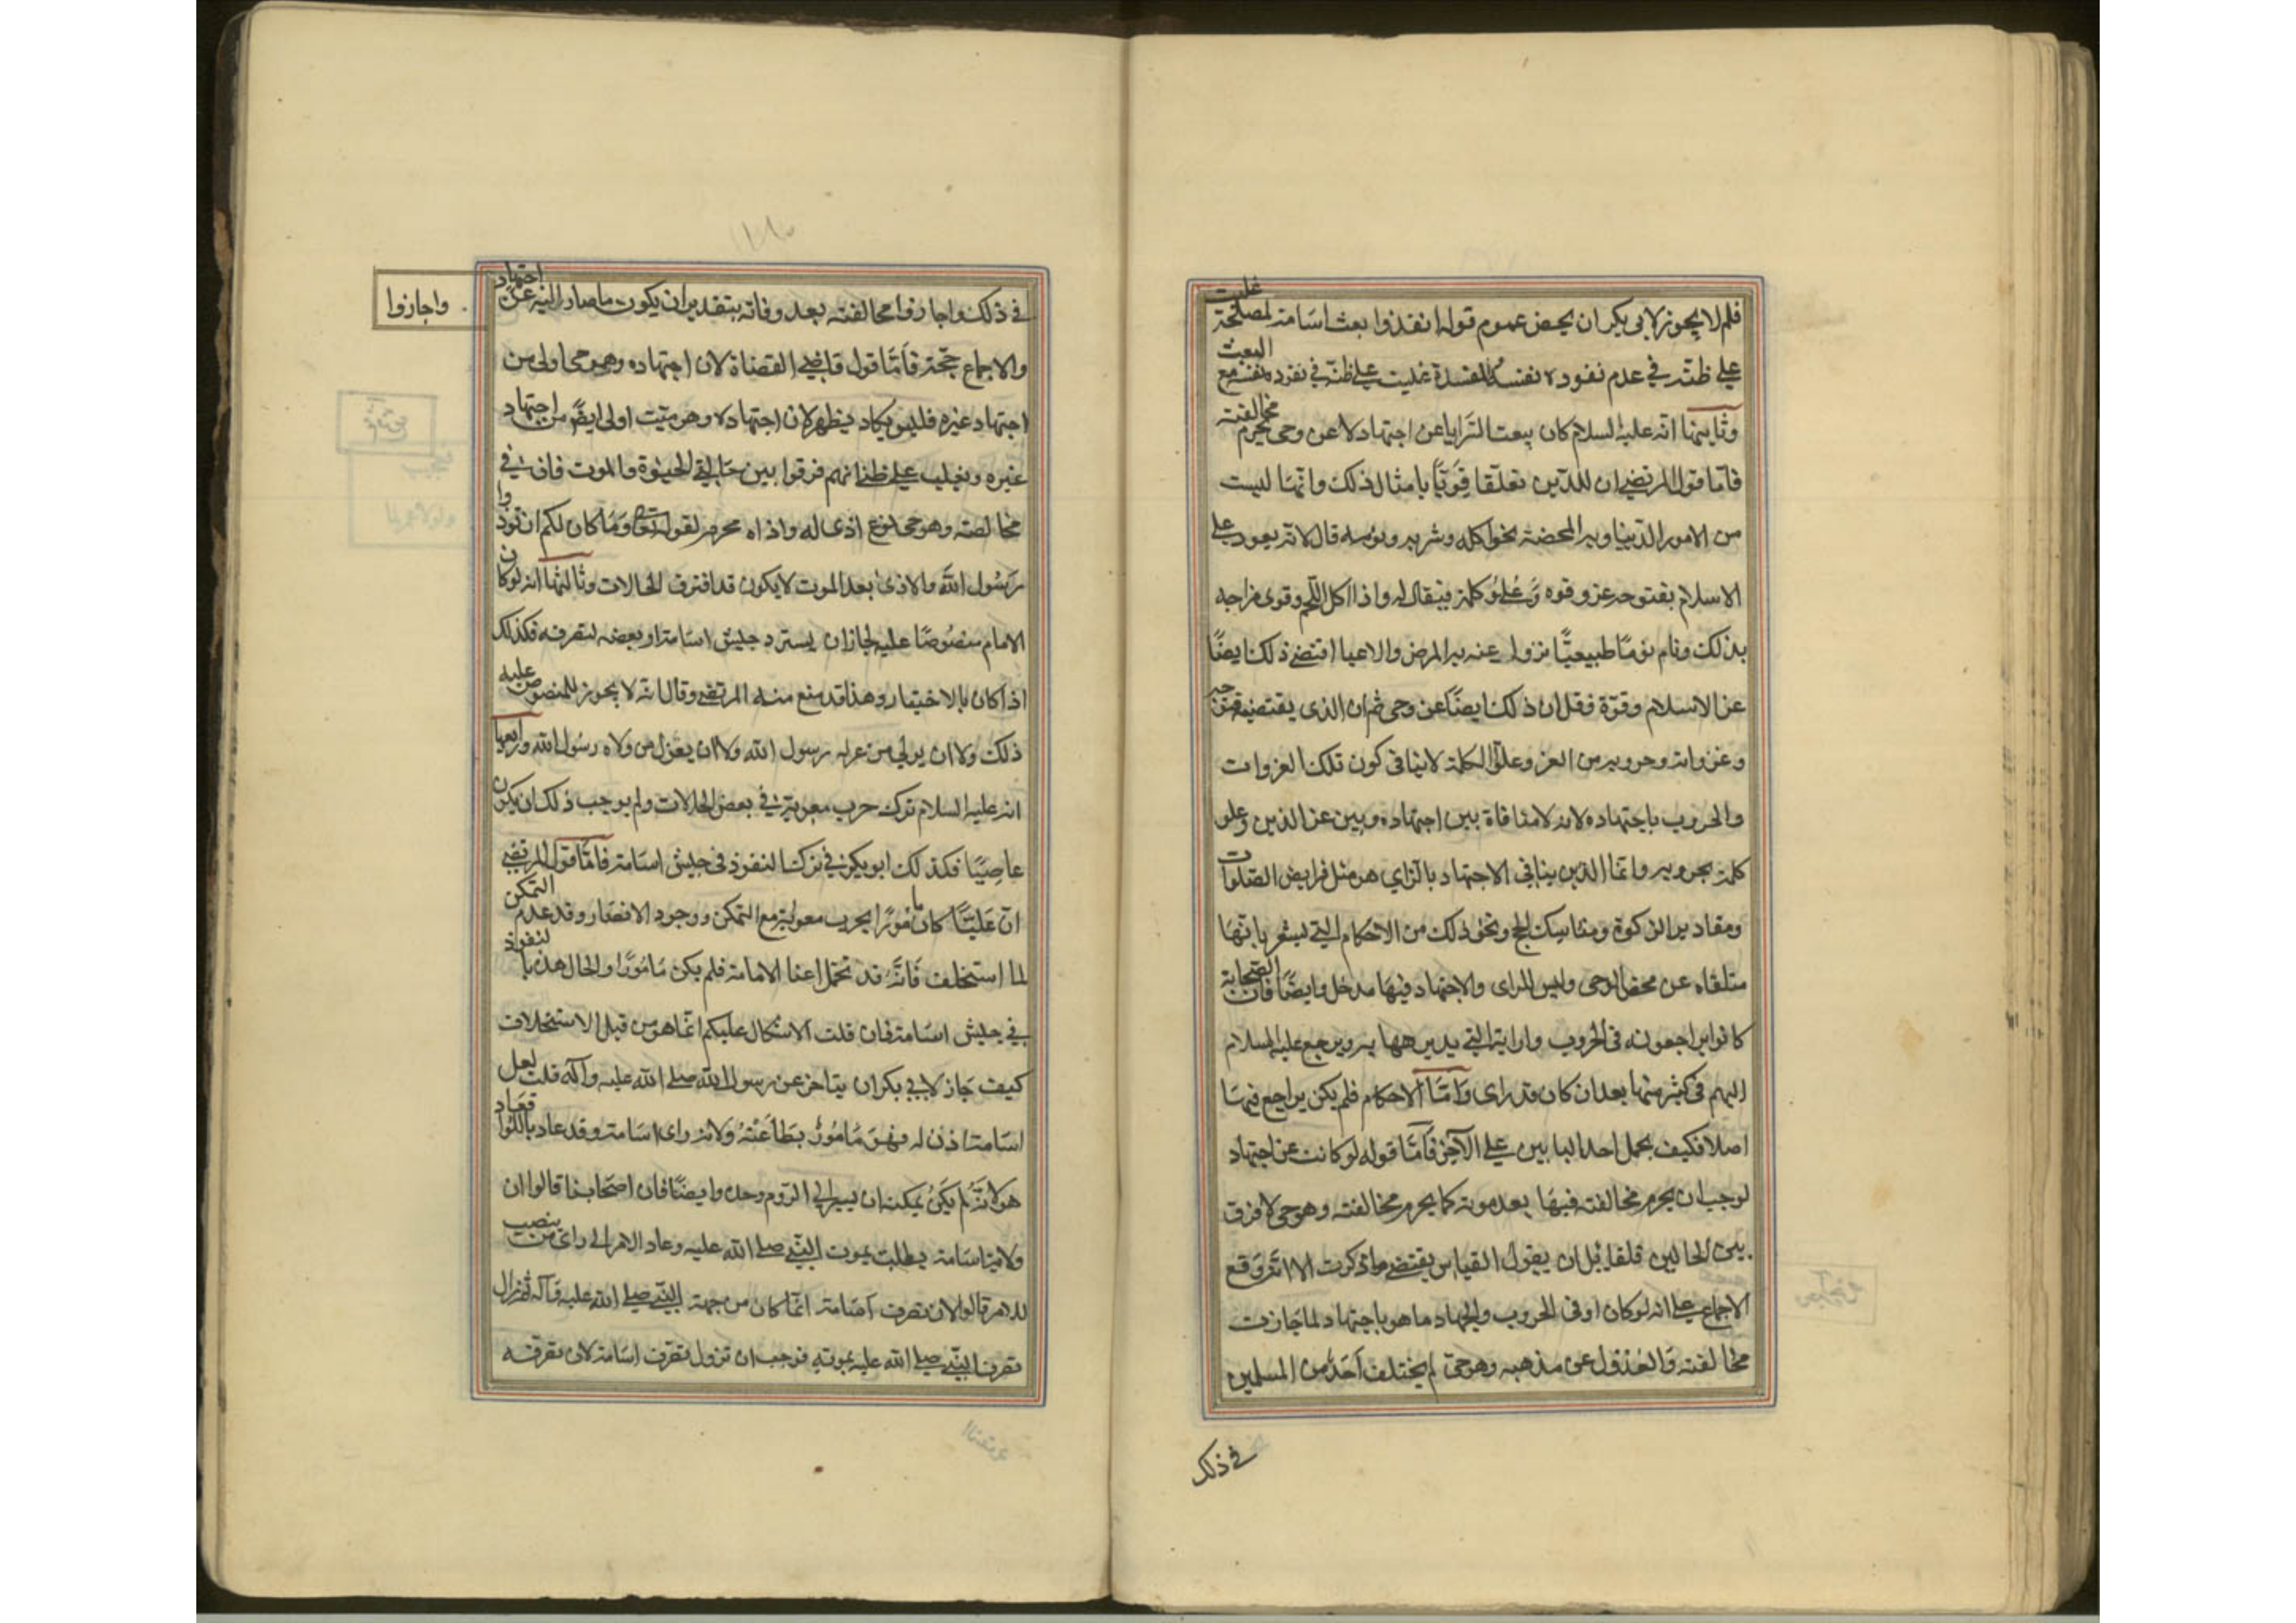 فلم لا يجوز لابى بكر ان يخص عموم قوله انفذوا بعث اسامة لمصلحة غلبت
على ظنه فى عدم نفوذه نفسه ولمفسدة غلبت على ظنه فى نفوذه نفسه مع البعث
وثانيها انه عليه السلام كان يبعث السرايا عن اجتهاد لا عن وحى يحرم مخالفته
فاما قول المرتضى ان للدين تعلقا قويا بامثال ذلك وانها ليست
من الامور الدنياوية المحضة نحو اكله وشربه ونومه قال لانه يعود على
الاسلام بفتوحه عز وقوه وعلو كلمة فيقال له واذا اكل اللحم وقوى مزاجه
بذلك ونام نوما طبيعيا نزول عنه به المرض والاعيا اقتضى ذلك ايضا
عز الاسلام وقوة فقل ان ذلك ايضا عن وحى ثم ان الذى يقتضيه
وغزواته وحروبه من العز وعلو الكلمة لا ينافى كون تلك الغزوات
والحروب باجتهاده لانه لا منافاة بين اجتهاده وبين عز الدين وعلو
كلمته بحروبه وانما الذى ينافى الاجتهاد بالراي هو مثل فرايض الصلوات
ومقادير الزكوة ومناسك الحج ونحو ذلك من الاحكام التى تشعر بانها
متلقاه عن محض الوحى وليس للراى والاجتهاد فيها مدخل وايضا فان الصحابة
كانوا يراجعونه فى الحروب وارايه التى يدبرها به ويرجع عليه السلام
اليهم فى كثير منها بعد ان كان قد راى واما الاحكام فلم يكن يراجع فيها
اصلا فكيف يحمل احد البابين على الآخر فاما قوله لو كانت عن اجتهاد
لوجب ان يحرم مخالفته فيها بعد موته كما يحرم مخالفته وهو حى لا فرق
بين الحالين فلقايل ان يقول القياس يقتضى ما ذكرت الا انه وقع
الاجماع على انه لو كان اوفى الحروب والجهاد ما هو باجتهاد لما جازت
مخالفته والعدول عن مذهبه وهو حى لم يختلف احد من المسلمين
فى ذلك
فى ذلك واجازوا مخالفته بعد وفاته بتقدير ان يكون ما صار اليه عن اجتهاد
والاجماع حجة فاما قول قاضى القضاة لان اجتهاده وهو حى اولى من
اجتهاد غيره فليس يكاد يظهر لان اجتهاده وهو ميت اولى ايضا من اجتهاد
غيره ويغلب على ظنى انهم فرقوا بين حالتى الحيوة والموت فان فى
مخالفته وهو حى نوع اذى له واذاه محرم لقوله تعالى وما كان لكم ان تؤذوا
رسول الله والاذى بعد الموت لا يكون قد افترق الحالات وثالثها انه لو كان
الامام منصوصا عليه لجاز ان يسترد جيش اسامة او بعضه لنصرته فكذلك
اذا كان بالاختيار وهذا قد منع منه المرتضى وقال انه لا يجوز للمنصوص عليه
ذلك ولا ان يولى من عزله رسول الله ولا ان يعزل من ولاه رسول الله ورابعها
انه عليه السلام ترك حرب معوية فى بعض الحالات ولم يوجب ذلك ان يكون
عاصيا فكذلك ابو بكر فى تركه النفوذ فى جيش اسامة فاما قول المرتضى
ان عليا كان مامورا بحرب معوية مع التمكن ووجود الانصار وقد عدم التمكن
لما استخلف فانه قد تحمل اعبا الامامة فلم يكن مامورا والحال هذه بالنفوذ
فى جيش اسامة فان قلت الاشكال عليكم انما هو من قبل الاستخلاف
كيف جاز لابى بكر ان يتاخر عن رسول الله صلى الله عليه وآله قلت لعل
اسامة اذن له فهو مامور بطاعته ولانه راى اسامة وقد عاد باللوا فعاد
هو لانه لم يكن يمكنه ان يسير الى الروم وحده وايضا فان اصحابنا قالوا ان
ولاية اسامة بطلت بموت النبى صلى الله عليه وعاد الامر الى راى من ينصب
للامر قالوا لان تصرف اسامة انما كان من جهة النبى صلى الله عليه وآله ثم زال
تصرف النبى صلى الله عليه بموته فوجب ان تزول تصرف اسامة لان تصرفه
واجازوا